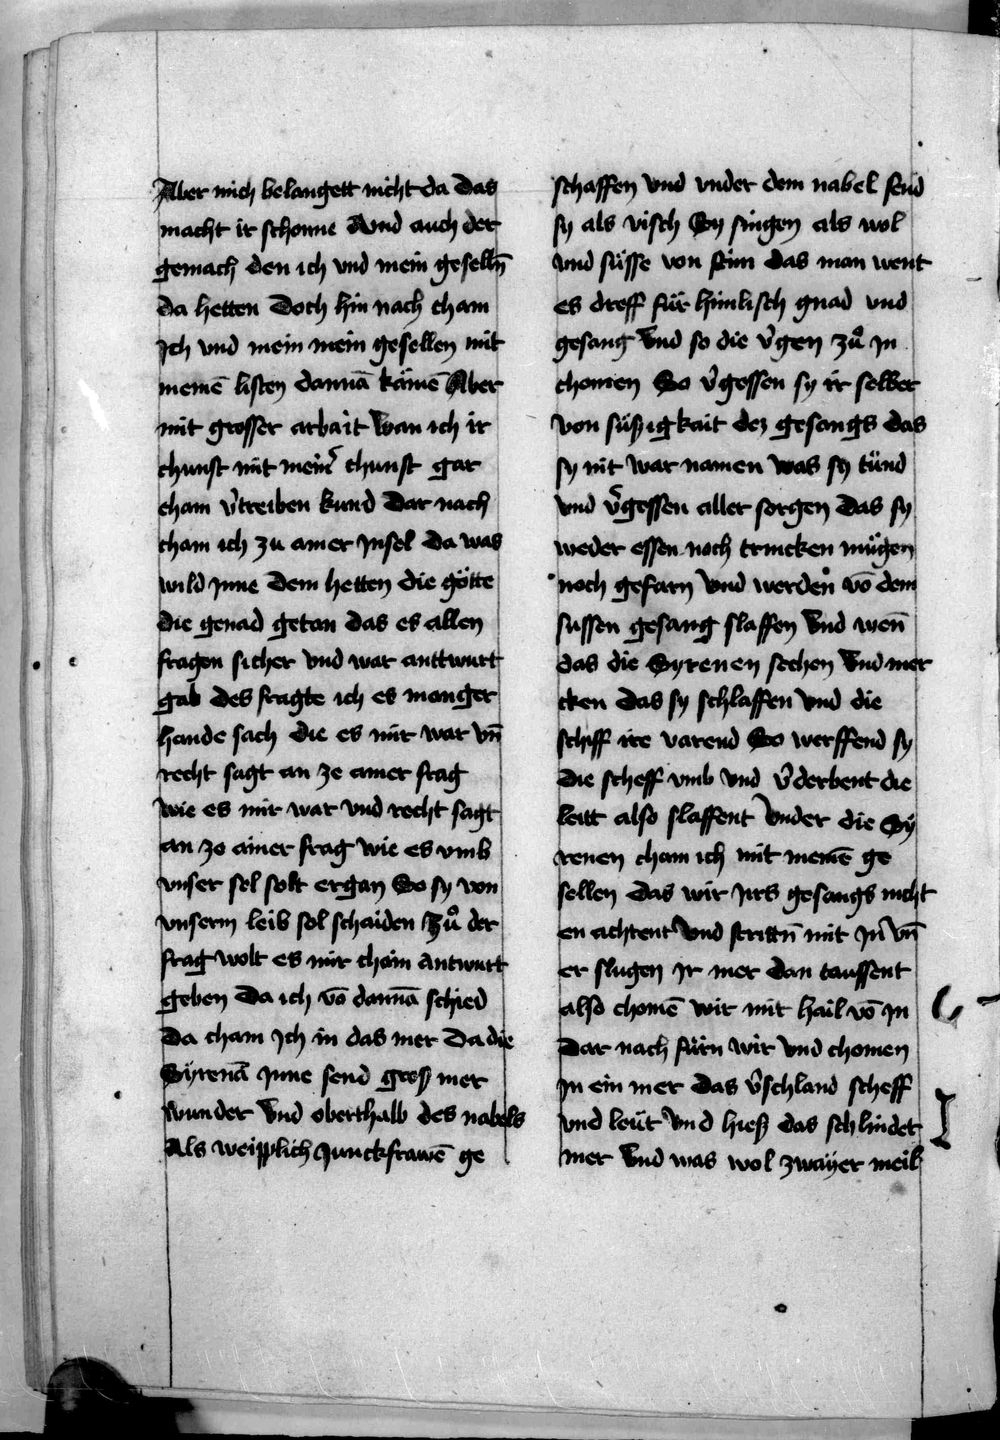 Aber mich belangett nicht da das
macht ir schonne Vnd auch der
gemach den ich vnd mein geselln̄
da hetten Doch hin nach cham
Ich vnd mein mein gesellen mit
meinē listen dannā kämē Aber
mit grosser arbait Wan ich ir
chunst mit mein᷑ chunst gar
cham v᷑treiben kund Dar nach
cham ich zu ainer jnsel da was
wild jnne dem hetten die götte
die genad getan das es allen
fragen sicher vnd war anttwurt
gab des fragte ich es manger
hande sach die es mir war vn̄
recht sagt an ze ainer frag
wie es mir war vnd recht sagt
an ze ainer frag wie es vmb
vnser sel solt ergan So sy von
vnserm leib sol schaiden Zů der
frag wolt es mir chain antwurt
geben Da ich vō dannā schied
Da cham Ich in das mer Da die
Syrenā jnne send gross mer
wunder Vnd oberthalb des nabels
Als weipplich junckfrawē ge
schaffen vnd vnder dem nabel send
sy als visch Sy singen als wol
vnd süsse von stim das man went
es dreff für himlisch gnad vnd
gesang Vnd so die v᷑gen zů jn
chomen So v᷑gessen sy ir selber
von süßigkait dez gesangs das
sy nit war namen was sy tünd
vnd v᷑gessen aller sorgen das sy
weder essen noch trincken mügen
noch gefarn Vnd werden vō dem
sussen gesang slaffen Vnd wen̄
das die Syrenen sechen Vnd mer
cken das sy schlaffen Vnd die
schiff ire varend So werffend sy
die scheff vmb vnd v᷑derbent die
leitt also slaffent Vnder die Sÿ
renen cham ich mit meinē ge
sellen das wir jrs gesangs nicht
en achtent Vnd strittn̄ mit jn vn̄
er slugen jr mer dan taussent
also chomē wir mit hail vō jn
Dar nach fürn wir Vnd chomen
jn ein mer das v᷑schland scheff
vnd leüt vnd hieß das schlindet
mer Vnd was wol zwayer meil